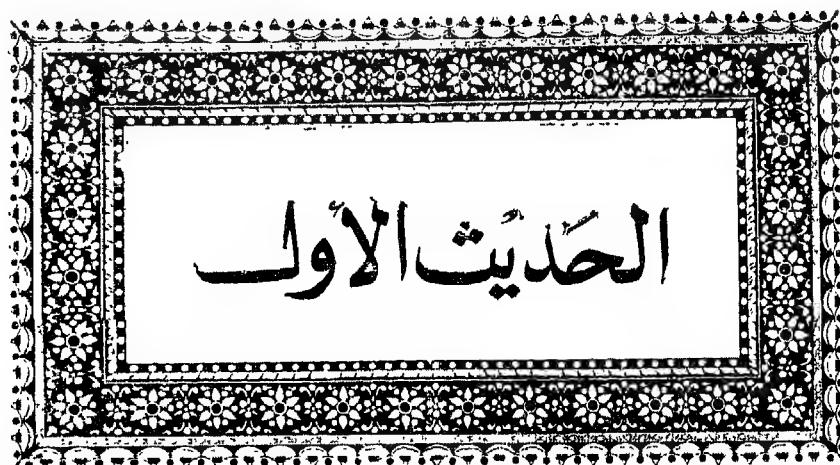 الحديث الأول